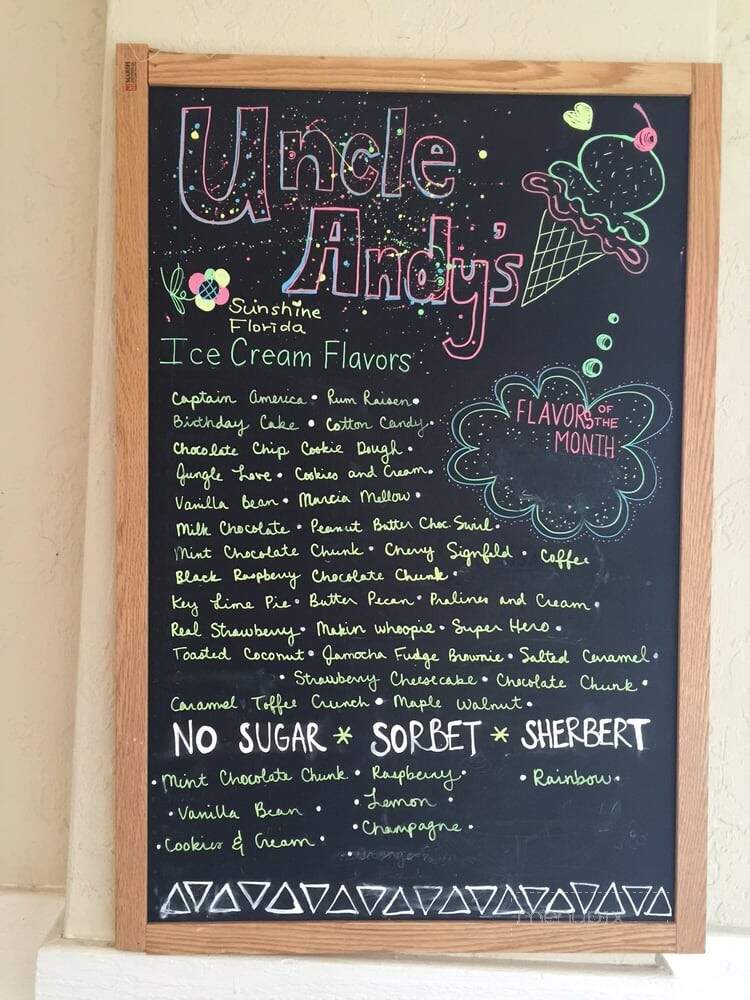 Uncle
Andy's
Sunshine
Florida
Ice Cream Flavors
FLAVORS OF THE
MONTH
Captain America • Rum Raisen •
Birthday Cake • Cotton Candy •
Chocolate Chip Cookie Dough •
Jungle Love • Cookies and Cream •
Vanilla Bean • Marcia Mellow •
Milk Chocolate • Peanut Butter Choc Swirl •
Mint Chocolate Chunk • Cherry Signfeld • Coffee
Black Raspberry Chocolate Chunk •
Key Lime Pie • Butter Pecan • Pralines and Cream •
Real Strawberry • Makin Whoopie • Super Hero •
Toasted Coconut • Jamocha Fudge Brownie • Salted Caramel •
• Strawberry Cheesecake • Chocolate Chunk •
Caramel Toffee Crunch • Maple Walnut •
NO SUGAR * SORBET * SHERBERT
• Mint Chocolate Chunk • Raspberry • • Rainbow •
• Vanilla Bean • • Lemon •
• Cookies & Cream • • Champagne •